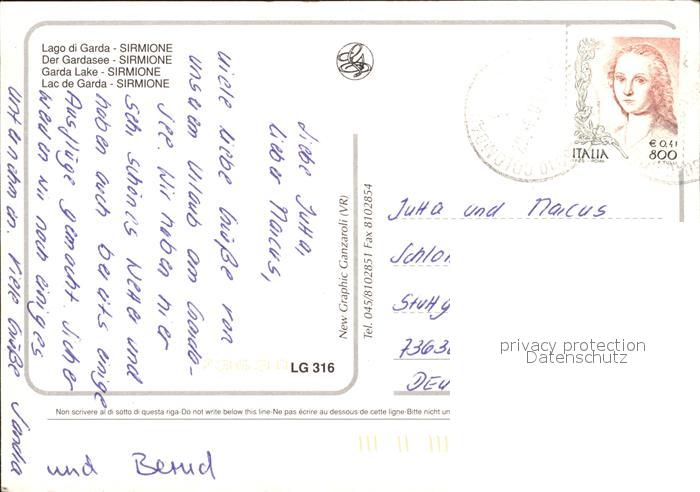 Lago di Garda - SIRMIONE
Der Gardasee - SIRMIONE
Garda Lake - SIRMIONE
Lac de Garda - SIRMIONE
Liebe Jutta,
lieber Marcus,
viele liebe Grüße von
unserem Urlaub am Garda-
see. Wir haben hier
sehr schönes Wetter und
haben auch bereits einige
Ausflüge gemacht. Sicher
werden wir noch einiges
unternehmen. Viele Grüße Sandra
und Bernd
New Graphic Ganzaroli (VR)
Tel. 045/8102851 Fax 8102854
LG 316
ITALIA
€ 0,41
800
Jutta und Marcus
Schlo
Stuttg
7363
DEU
privacy protection
Datenschutz
Non scrivere al di sotto di questa riga-Do not write below this line-Ne pas écrire au dessous de cette ligne-Bitte nicht un